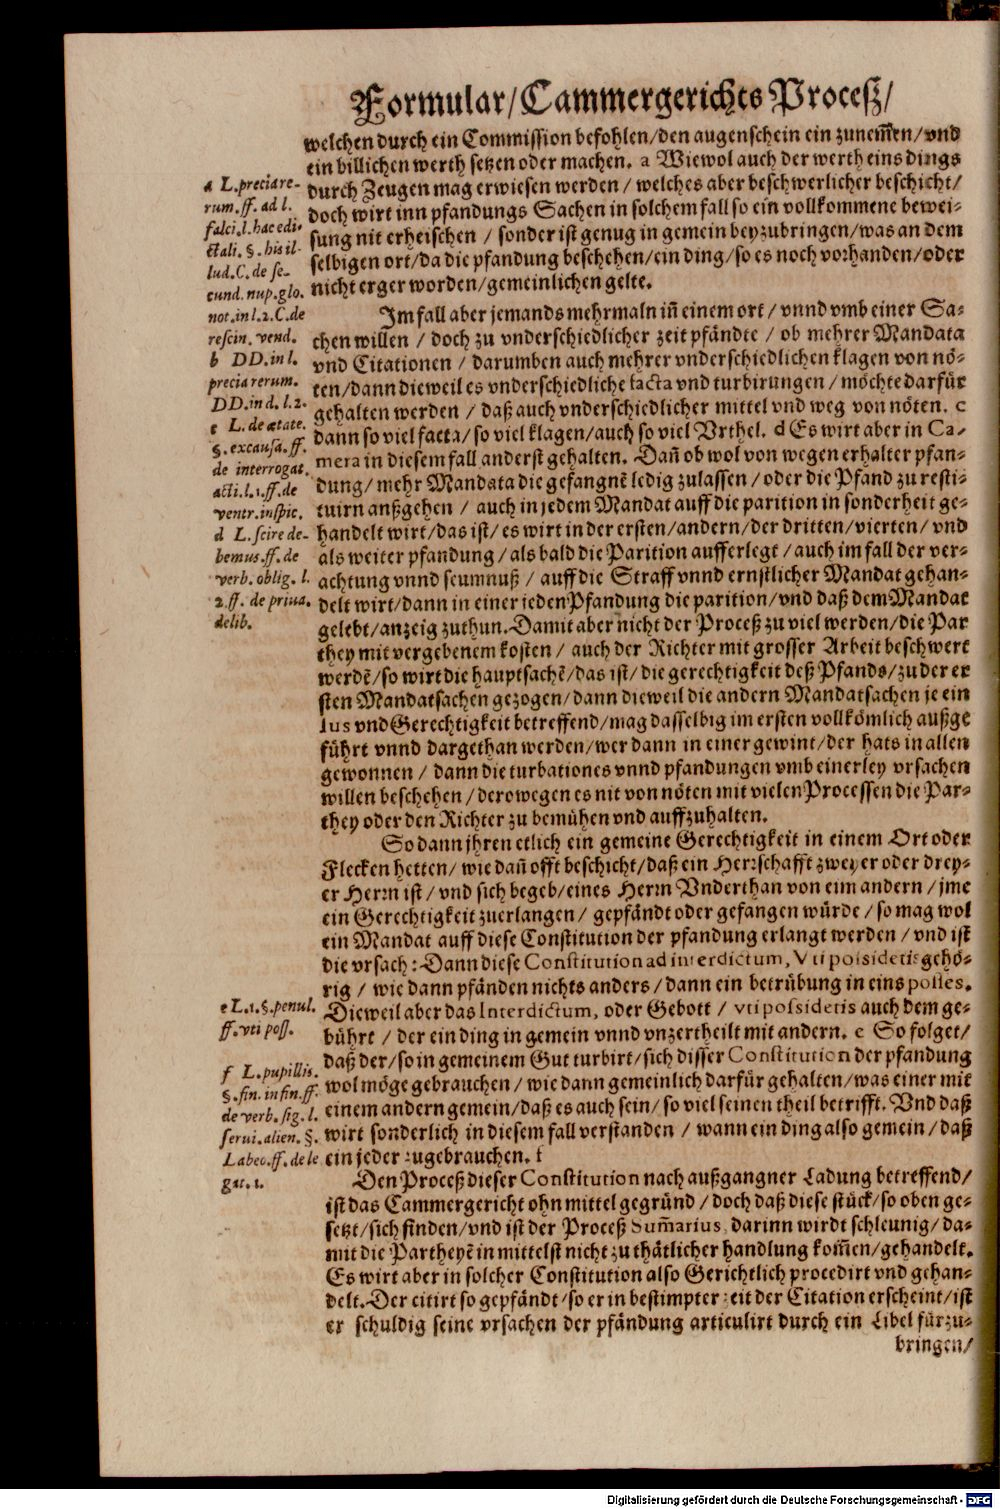 Formular/Cammergerichts Proceß/
welchen durch ein Commission befohlen/den augenschein ein zunem̃en/vnd
ein billichen werth setzen oder machen. a Wiewol auch der werth eins dings
durch Zeugen mag erwiesen werden / welches aber beschwerlicher beschicht/
doch wirt inn pfandungs Sachen in solchem fall so ein vollkommene bewei-
sung nit erheischen / sonder ist genug in gemein beyzubringen/was an dem
selbigen ort/da die pfandung beschehen/ein ding/so es noch vorhanden/oder
nicht erger worden/gemeinlichen gelte.
Im fall aber jemands mehrmaln iñ einem ort / vnnd vmb einer Sa-
chen willen / doch zu vnderschiedlicher zeit pfändte / ob mehrer Mandata
vnd Citationen / darumben auch mehrer vnderschiedlichen klagen von nö-
ten/dann dieweil es vnderschiedliche facta vnd turbirungen / möchte darfür
gehalten werden / daß auch vnderschiedlicher mittel vnd weg von nöten. c
dann so viel facta/so viel klagen/auch so viel Vrthel. d Es wirt aber in Ca-
mera in diesem fall anderst gehalten. Dañ ob wol von wegen erhalter pfan-
dung/mehr Mandata die gefangnẽ ledig zulassen / oder die Pfand zu resti-
tuirn anßgehen / auch in jedem Mandat auff die parition in sonderheit ge-
handelt wirt/das ist/es wirt in der ersten/andern/der dritten/vierten/vnd
als weiter pfandung/als bald die Parition aufferlegt / auch im fall der ver-
achtung vnnd seumnuß / auff die Straff vnnd ernstlicher Mandat gehan-
delt wirt/dann in einer jeden Pfandung die parition/vnd daß dem Mandat
gelebt/anzeig zuthun. Damit aber nicht der Proceß zu viel werden/die Par
they mit vergebenem kosten / auch der Richter mit grosser Arbeit beschwert
werdẽ/so wirt die hauptsachẽ/das ist/die gerechtigkeit deß Pfands/zu der er
sten Mandatsachen gezogen/dann dieweil die andern Mandatsachen je ein
Ius vnd Gerechtigkeit betreffend/mag dasselbig im ersten vollkömlich außge
führt vnnd dargethan werden/wer dann in einer gewint/der hats in allen
gewonnen / dann die turbationes vnnd pfandungen vmb einerley vrsachen
willen beschehen/derowegen es nit von nöten mit vielen Processen die Par-
they oder den Richter zu bemühen vnd auffzuhalten.
So dann jhren etlich ein gemeine Gerechtigkeit in einem Ort oder
Flecken hetten/ wie dañ offt beschicht/daß ein Herrschafft zweyer oder drey-
er Herrn ist / vnd sich begeb/eines Herrn Vnderthan von eim andern / jme
ein Gerechtigkeit zuerlangen / gepfändt oder gefangen würde / so mag wol
ein Mandat auff diese Constitution der pfandung erlangt werden / vnd ist
die vrsach: Dann diese Constitution ad interdictum, Vti possidetis gehö-
rig / wie dann pfänden nichts anders / dann ein betrübung in eins posses.
Dieweil aber das Interdictum, oder Gebott / vti possidetis auch dem ge-
bührt / der ein ding in gemein vnnd vnzertheilt mit andern. e So folget/
daß der/so in gemeinem Gut turbirt/sich disser Constitution der pfandung
wol möge gebrauchen / wie dann gemeinlich darfür gehalten/was einer mit
einem andern gemein/daß es auch sein/so viel seinen theil betrifft. Vnd daß
wirt sonderlich in diesem fall verstanden / wann ein ding also gemein/daß
ein jeder zugebrauchen. f
Den Proceß dieser Constitution nach außgangner Ladung betreffend/
ist das Cammergericht ohn mittel gegründ / doch daß diese stück/so oben ge-
setzt/sich finden/vnd ist der Proceß Sum̃arius, darinn wirdt schleunig/da-
mit die Partheyẽ in mittelst nicht zu thätlicher handlung kom̃en/gehandelt.
Es wirt aber in solcher Constitution also Gerichtlich procedirt vnd gehan-
delt. Der citirt so gepfändt/so er in bestimpter zeit der Citation erscheint/ist
er schuldig seine vrsachen der pfändung articulirt durch ein Libel fürzu-
bringen/
a L. preciare-
rum. ff. ad l.
falci. l. hac edi-
ctali. §. his il-
lud. C. de se-
cund. nup. glo.
not. in l. 2. C. de
rescin. vend.
b DD. in l.
precia rerum.
DD. in d. l. 2.
c L. de ætate.
§. ex causa. ff.
de interrogat.
acti. l. 1. ff. de
ventr. inspic.
d L. scire de-
bemus. ff. de
verb. oblig. l.
2. ff. de priua.
delib.
e L. 1. §. penul.
ff. vti poss.
f L. pupillis.
§. fin. in fin. ff.
de verb. sig. l.
serui. alien. §.
Labeo. ff. de le
gat. 1.
Digitalisierung gefördert durch die Deutsche Forschungsgemeinschaft - DFG